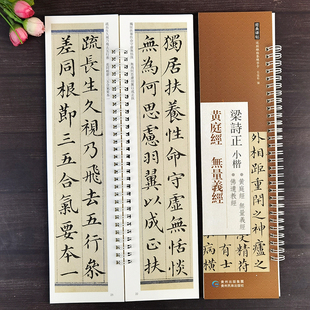 外相距重閉之神廬之
梁詩正 小楷
黃庭經 無量義經
佛遺教經
黃庭經 無量義經
獨居扶養性命守虛無恬惔
無為何思慮羽翼以成正扶
疏長生久視乃飛去五行參
差同根節三五合氣要本一